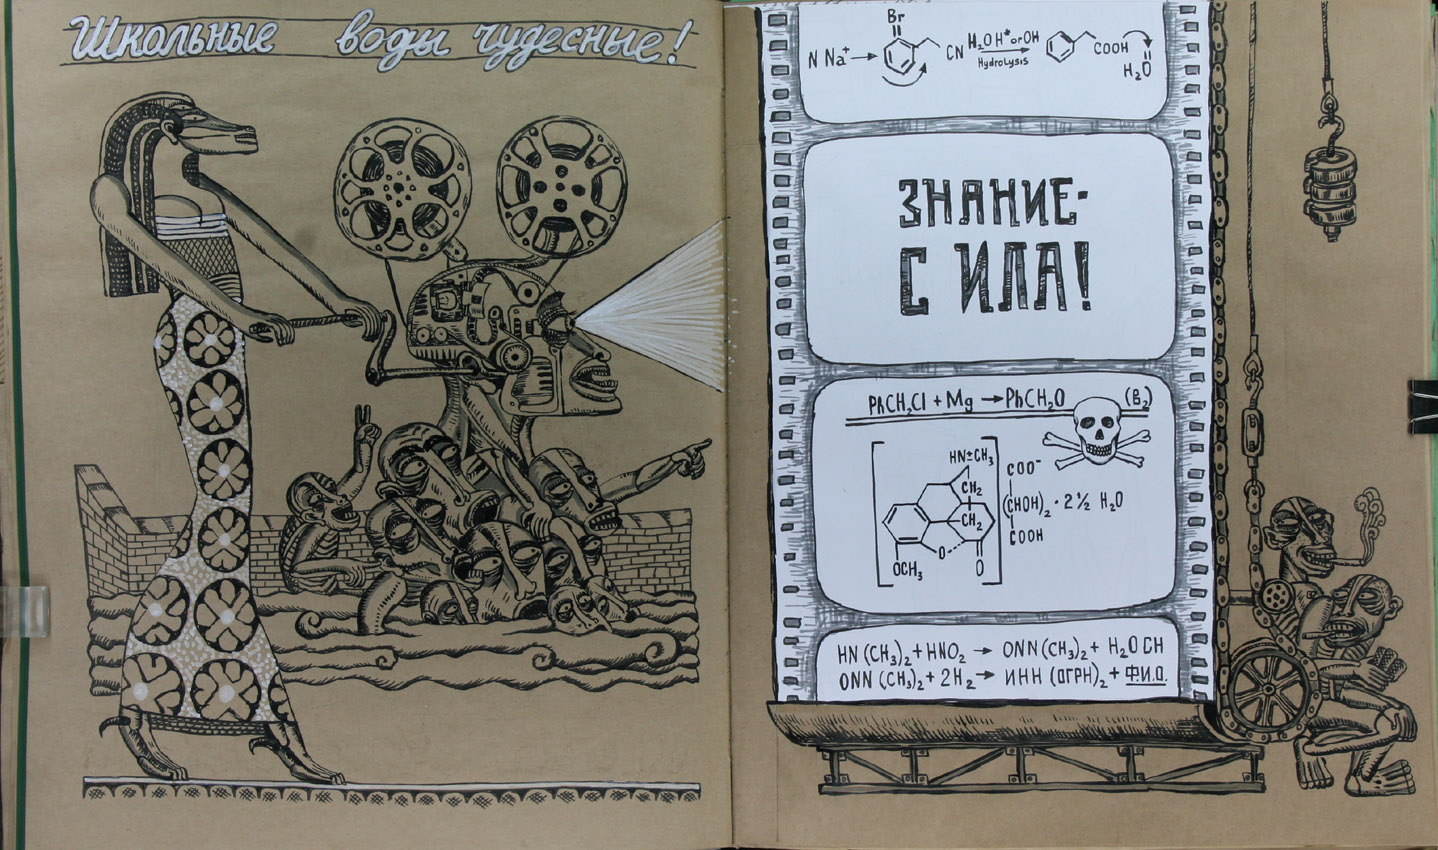 Школьные воды чудесные!
N Na⁺ → Br CN H₂O H⁺ or OH Hydrolysis COOH H₂O
ЗНАНИЕ-
С ИЛА!
PhCH₂Cl + Mg → PhCH₂O (B₂)
HN±CH₃
COO⁻
CH₂
(CHOH)₂ · 2½ H₂O
CH₂
COOH
O
OCH₃
O
HN(CH₃)₂ + HNO₂ → ONN(CH₃)₂ + H₂O CH
ONN(CH₃)₂ + 2H₂ → ИНН (ОГРН)₂ + Ф.И.О.